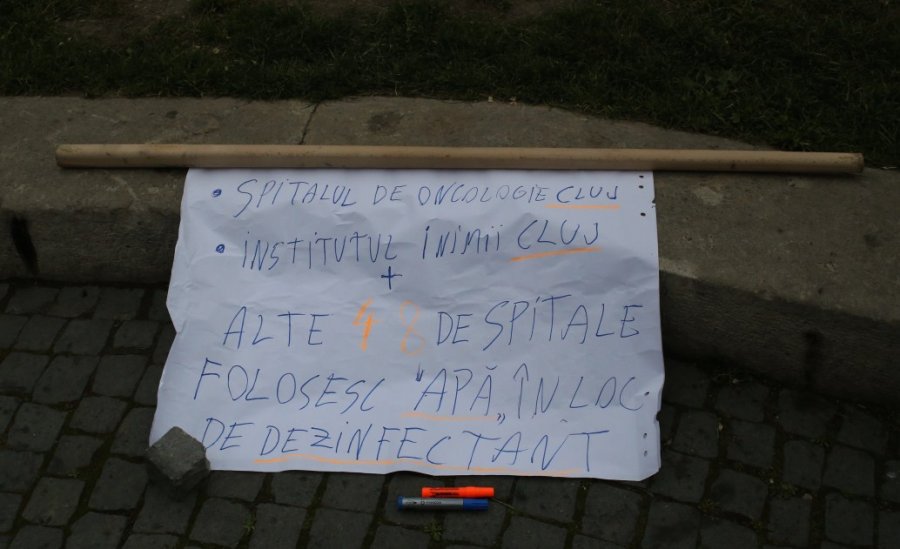 • SPITALUL DE ONCOLOGIE CLUJ
• INSTITUTUL INIMII CLUJ
+
ALTE 48 DE SPITALE
FOLOSESC "APĂ„ ÎN LOC
DE DEZINFECTANT